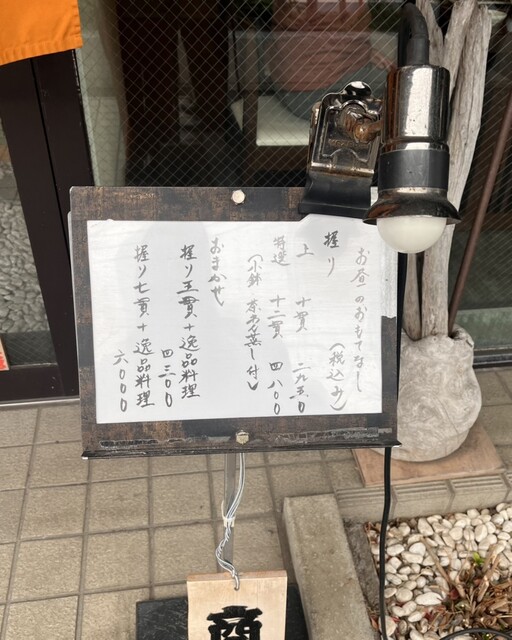 お昼のおもてなし
(税込み)
握り
上 十貫 二九五0
特選 十二貫 四八00
(小鉢 茶わん蒸し付)
おまかせ
握り五貫+逸品料理
四三00
握り七貫+逸品料理
六000